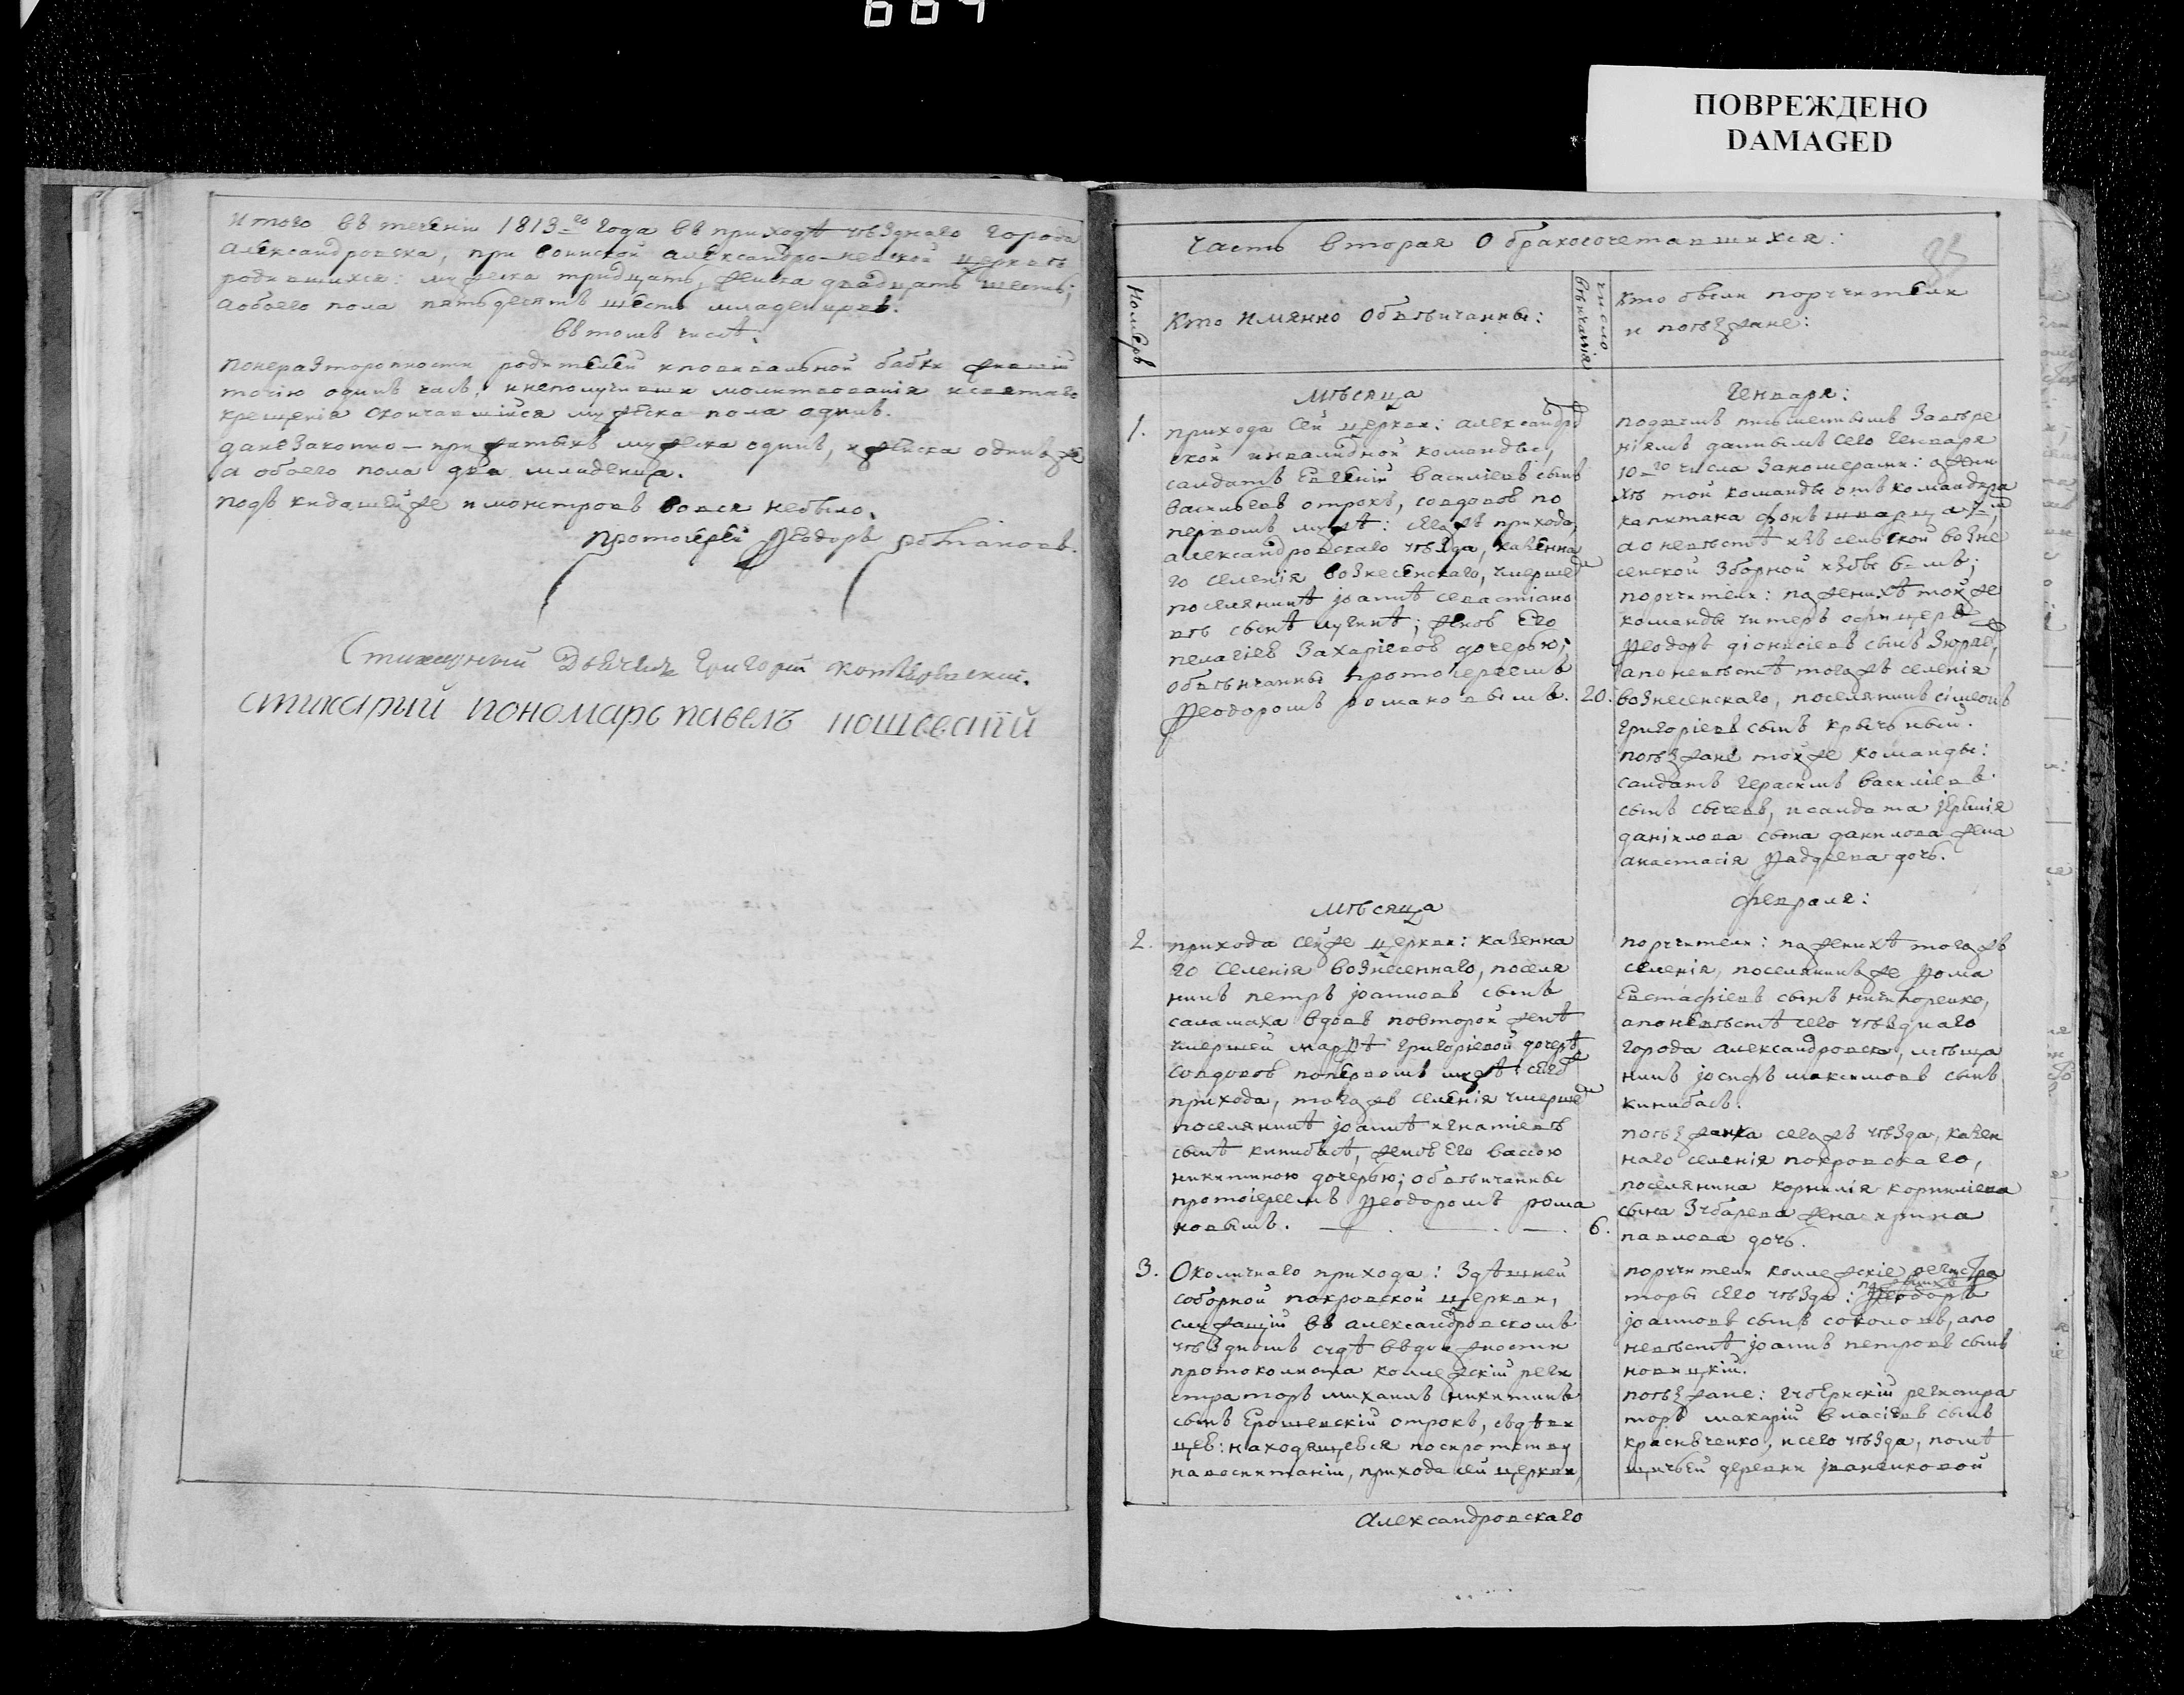 ПОВРЕЖДЕНО
DAMAGED
Итого въ теченіи 1813-го года въ приходѣ уѣзднаго города
Александровска, при воинской александро-невской церквѣ
родившихся: мужеска тридцать, женска двадцать шесть;
а обоего пола пятьдесятъ шесть младенцовъ.
въ томъ числѣ:
понерасторопности родителей и повивальной бабки жившій
точію одинъ часъ, и неполучивши молитвованія и святаго
крещенія скончавшійся мужеска пола одинъ.
да незаконно-прижитыхъ мужеска одинъ, и женска одинъ же
а обоего пола два младенца.
подъ кидашей же и монстровъ вовся небыло.
протоіерей Ѳеодоръ романовъ.
Стихарный Дьячекъ Григорій
стихарый пономарь павелъ
часть вторая о бракосочетавшихся:
номеръ
Кто имянно обвѣнчанны:
число вѣнчанія
Кто были поручители
и поѣзжане:
мѣсяца
Генваря:
1. прихода сей церкви: александров
ской инвалидной команды,
салдатъ Евгеній василіевъ сынъ
васильевъ отрокъ, совдовою по
первомъ мужѣ: сегожъ прихода,
александровскаго уѣзда, казенна
го селенія вознесенскаго, умершаго
поселянинѣ іоаннѣ севастіано
вѣ сынѣ; женою Его
пелагіею Захаріевою дочерью;
обвѣнчанны протоіереемъ
Ѳеодоромъ романовымъ. 20.
подачимъ письменнымъ завѣре
ніямъ даннымъ сего Генваря
10-го числа заномерами: о жени
хѣ той команды отъ командира
капитана фонъ
а о невѣстѣ изъ сельской возне
сенской зборной избы 6-мъ;
поручители: по женихѣ той же
команды унтеръ офицеръ
Ѳеодоръ діонисіевъ сынъ
а по невѣстѣ тогожъ селенія
вознесенскаго, поселянинъ сімеонъ
григоріевъ сынъ
поѣзжане той же команды:
салдатъ герасимъ василіевъ
сынъ сычевъ, и салдата
даніилова сына данилова жена
анастасія Ѳаддеева дочь.
мѣсяца
февраля:
2. прихода сей же церкви: казенна
го селенія вознесеннаго, поселя
нинъ петръ іоанновъ сынъ
саламаха вдовъ повторой женѣ
умершей марѳѣ григоріевой дочерѣ,
совдовою попервомъ мужѣ: сего
прихода, тогожъ селенія умерше
поселянинѣ іоаннѣ игнатіевѣ
сынѣ кинибасѣ, женою Его вассою
никитиною дочерью; обвѣнчанны
протоіереемъ Ѳеодоромъ рома
новымъ. 6.
поручители: по женихѣ тогожъ
селенія, поселянинъ же Ѳома
Евстафіевъ сынъ ничипоренко,
а по невѣстѣ сего уѣзднаго
города александровска, мѣща
нинъ іосифъ максимовъ сынъ
кинибасъ.
поѣзжанка сегожъ уѣзда, казен
наго селенія покровскаго,
поселянина корнилія корниліева
сына зубарева жена ирина
павлова дочь.
3. Околичнаго прихода: здѣшней
соборной покровской церкви,
служащій въ александровскомъ
уѣздномъ судѣ въ должности
протоколиста коллежскій реги
страторъ михаилъ никитинъ
сынъ Ерошевскій отрокъ, съдѣви
цею: находящеюся посиротству
на воспитаніи, прихода сей церкви,
поручители коллежскіе регистра
торы сего уѣзда: по женихѣ Ѳеодоръ
іоанновъ сынъ соколовъ, а по
невѣстѣ іоаннъ петровъ сынъ
новицкій.
поѣзжане: губернскій регистра
торъ макарій власіевъ сынъ
красюченко, и сего уѣзда, помѣ
щичьей деревни іваненковой
Александровскаго